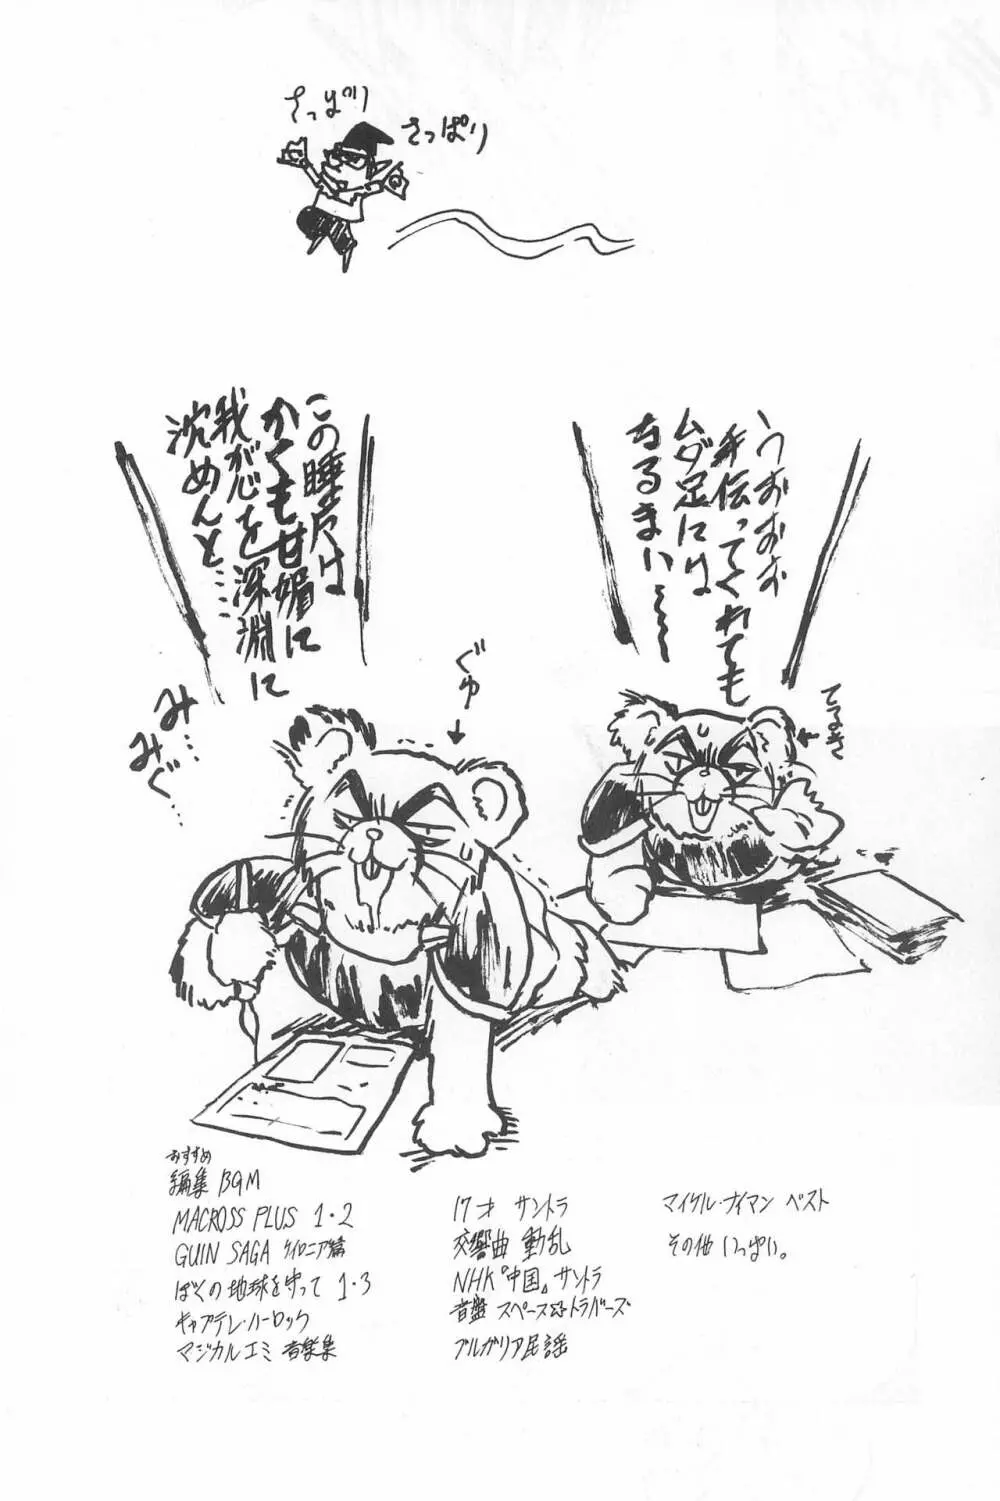 さっぱり
さっぱり
うおおおお
手伝ってくれても
ムダ足には
なるまい～～～
この睡穴は
かくも甘媚に
我が心を深淵に
沈めんと……
みみ…
みぐ…
ぐゅ
↓
おすすめ
編集 BGM
MACROSS PLUS 1・2
GUIN SAGA ケイロニア篇
ぼくの地球を守って 1・3
キャプテン・ハーロック
マジカルエミ 音楽集
17才 サントラ
交響曲 動乱
NHK『中国』サントラ
音盤 スペース☆トラバーズ
ブルガリア民謡
マイケル・ナイマン ベスト
その他 いっぱい。